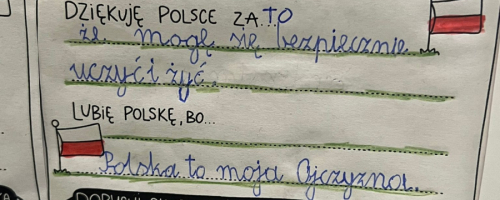 DZIĘKUJĘ POLSCE ZA...TO
że mogę się bezpiecznie
uczyć i żyć.
LUBIĘ POLSKĘ, BO...
Polska to moja Ojczyzna.